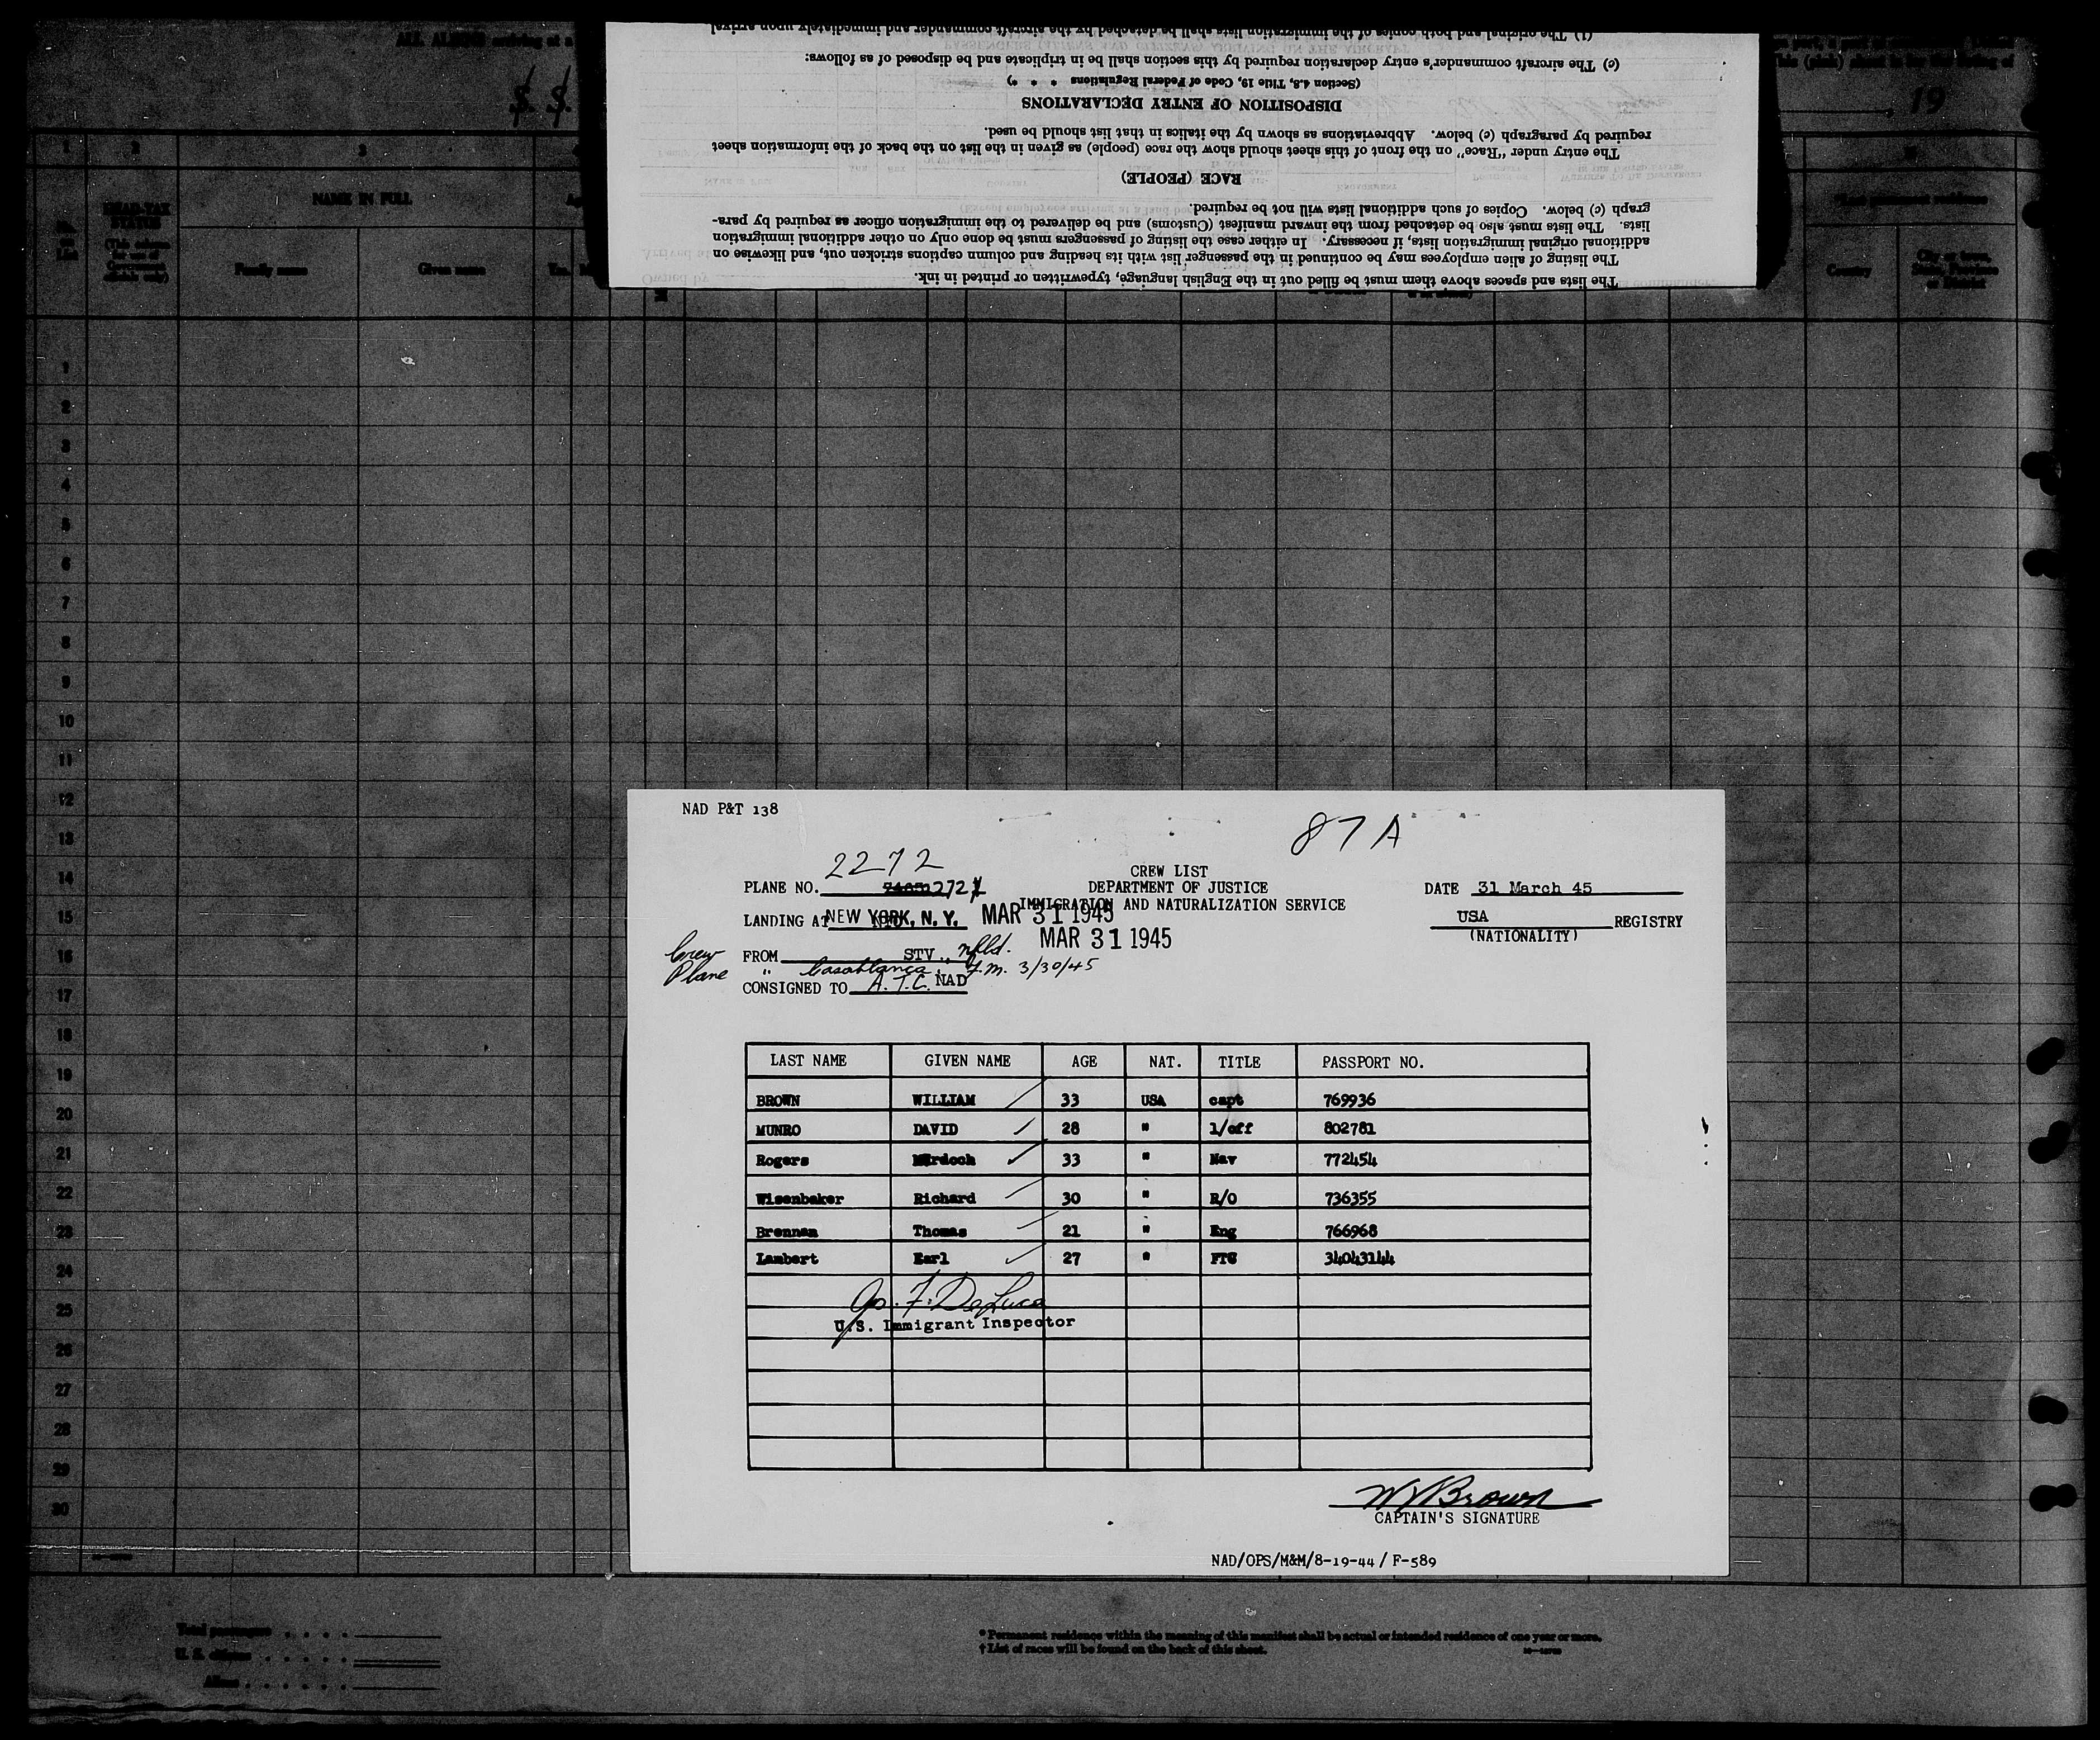 ALL ALIENS arriving at a
$ $
19
1 2 3
HEAD-TAX STATUS
(This column for use of Government officials only)
NAME IN FULL
Family name Given name Yrs.
*Last permanent residence
Country City or town, State, Province or District
(1) The original and both copies of the immigration lists shall be detached by the aircraft commander and immediately upon arrival
(c) The aircraft commander's entry declaration required by this section shall be in triplicate and be disposed of as follows:
(Section 4.8, Title 19, Code of Federal Regulations * * *)
DISPOSITION OF ENTRY DECLARATIONS
required by paragraph (c) below. Abbreviations as shown by the italics in that list should be used.
The entry under "Race" on the front of this sheet should show the race (people) as given in the list on the back of the information sheet
RACE (PEOPLE)
graph (c) below. Copies of such additional lists will not be required.
lists. The lists must also be detached from the inward manifest (Customs) and be delivered to the immigration officer as required by para-
additional original immigration lists, if necessary. In either case the listing of passengers must be done only on other additional immigration
The listing of alien employees may be continued in the passenger list with its heading and column captions stricken out, and likewise on
The lists and spaces above them must be filled out in the English language, typewritten or printed in ink.
1
2
3
4
5
6
7
8
9
10
11
12
13
14
15
16
17
18
19
20
21
22
23
24
25
26
27
28
29
30
NAD P&T 138
87A
2272
CREW LIST
PLANE NO. 272
DEPARTMENT OF JUSTICE
DATE 31 March 45
IMMIGRATION AND NATURALIZATION SERVICE
LANDING AT NEW YORK, N. Y. MAR 31 1945
USA REGISTRY
(NATIONALITY)
MAR 31 1945
Crew FROM STV., nfld.
Plane " Casablanca, F.M. 3/30/45
CONSIGNED TO A.T.C. NAD
LAST NAME GIVEN NAME AGE NAT. TITLE PASSPORT NO.
BROWN WILLIAM 33 USA capt 769936
MUNRO DAVID 28 " 1/off 802781
Rogers Murdoch 33 " Nav 772454
Wisenbaker Richard 30 " R/O 736355
Brennan Thomas 21 " Eng 766968
Lambert Earl 27 " FTC 34043144
Jo. F. DeLuca
U.S. Immigrant Inspector
W Brown
CAPTAIN'S SIGNATURE
NAD/OPS/M&M/8-19-44 / F-589
Total passengers . . . .
U. S. citizens . . . . .
Aliens . . . . . .
* Permanent residence within the meaning of this manifest shall be actual or intended residence of one year or more.
† List of races will be found on the back of this sheet.